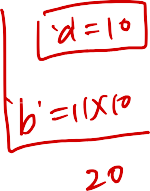 'd = 10
'b' = 11x10
20